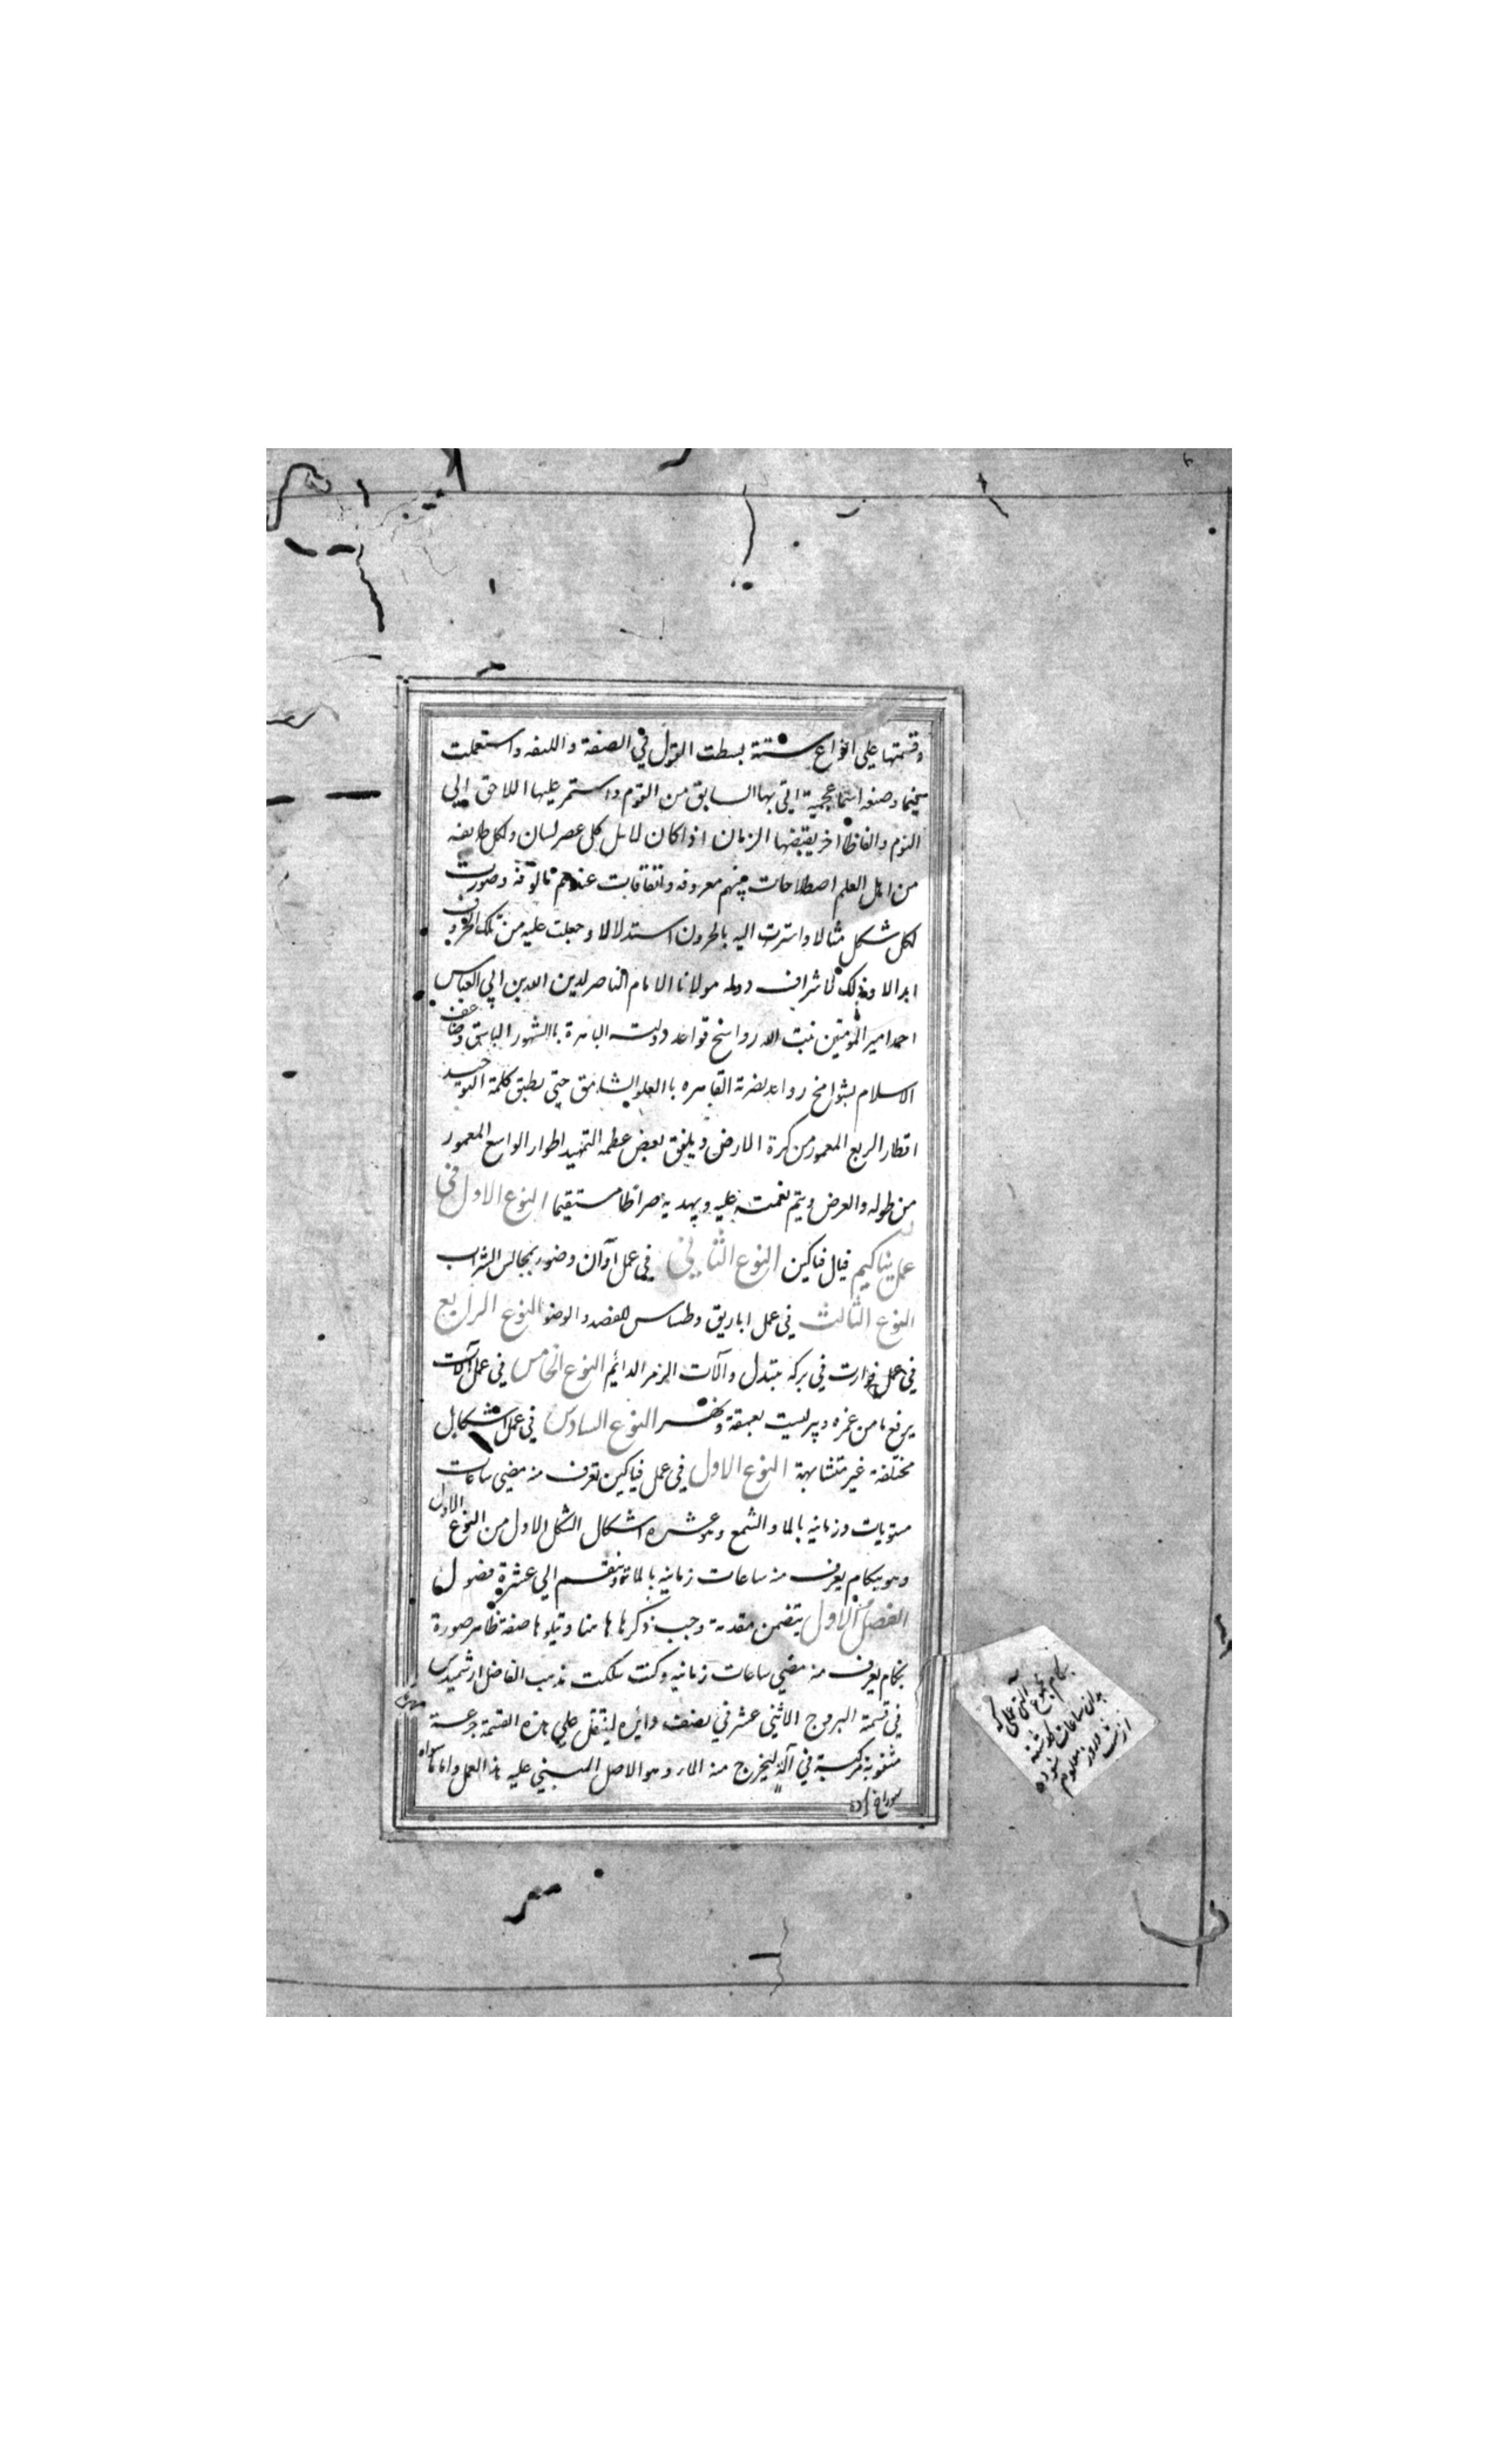 وقسمتها علی انواع ستة بسطت القول في الصنعة و الکیفه و استعملت
فیما وضعه اسما عجمیة اتی بها السابق من القوم و استمر علیها اللاحق الي
الیوم و الفاظا اخر یقتضیها الزمان اذا کان لاهل کل عصر لسان و لکل طایفه
من اهل العلم اصطلاحات بینهم معروفه و اتفاقات عندهم مالوفه و صورت
لکل شکل مثالا و اشرت الیه بالحروف استدلالا و جعلت علیه من تلک الحروف
ابدالا و ذلک لاشراف دوله مولانا الامام الناصر لدین الله بن ابي العباس
احمد امیر المؤمنین ثبت الله رواسخ قواعد دولته الباهرة باالشهور الباسق و ضاعف
الاسلام بشوامخ روابد نضرته القاهره باالعلو الشاهق حتی یطبق کلمة التوحید
اقطار الربع المعمور من کرة الارض و یلفق بعض عظمه التمهید اطوار الواسع المعمور
من طوله و العرض و یتم نعمته علیه و یهدیه صراطا مستقیما النوع الاول في
عمل بناکیم فیال فناکین النوع الثاني في عمل آوان و صور بمجالس الشراب
النوع الثالث في عمل اباریق و طساس للفصد و الوضو النوع الرابع
في عمل فوارت في برکه تبتدل و آلات الزمر الدائم النوع الخامس في عمل آلات
یرفع ما من غمره و بیر لیست بعمیقة و نهر النوع السادس في عمل اشکال
مختلفة غیر متشابهة النوع الاول في عمل فیاکین تعرف منه مضي ساعات
مستویات و زمانیه بالما و الشمع و هو عشره اشکال الشکل الاول من النوع الاول
و هو بنکام یعرف منه ساعات زمانیه بالما و ینقسم الي عشرة فصول
الفصل الاول یتضمن مقدمة وجب ذکرها هاهنا و یتلوها صفة ظاهر صورة
بنکام یعرف منه مضي ساعات زمانیه و کنت سلکت مذهب الفاضل ارشمیدس
في قسمة البروج الاثني عشر في نصف دائره لینتقل علي هذه القسمة جزعة
مثقوبة مرکبة في آلة لیخرج منه الما و هو الاصل المبني علیه هذا العمل و اما
سوراخ زاده
بنکام بنوع آلتی علی که
بدان ساعات گذشته
از شب و روز معلوم شوده